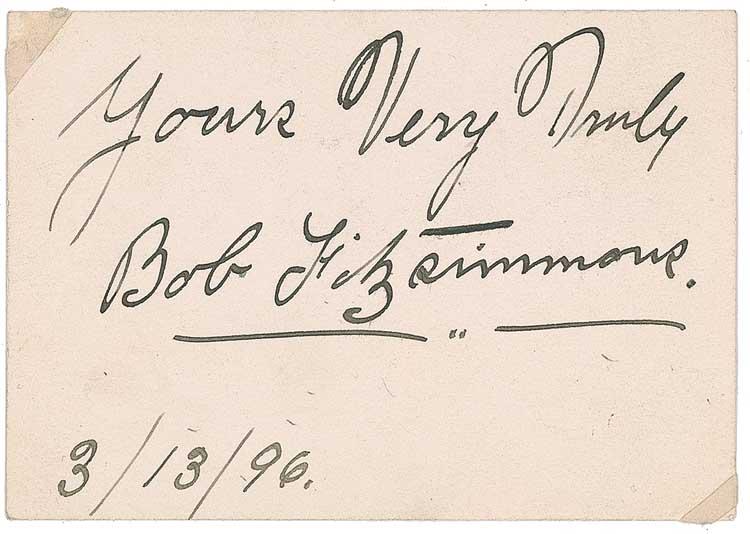 Yours Very Truly
Bob Fitzsimmons.
3/13/96.